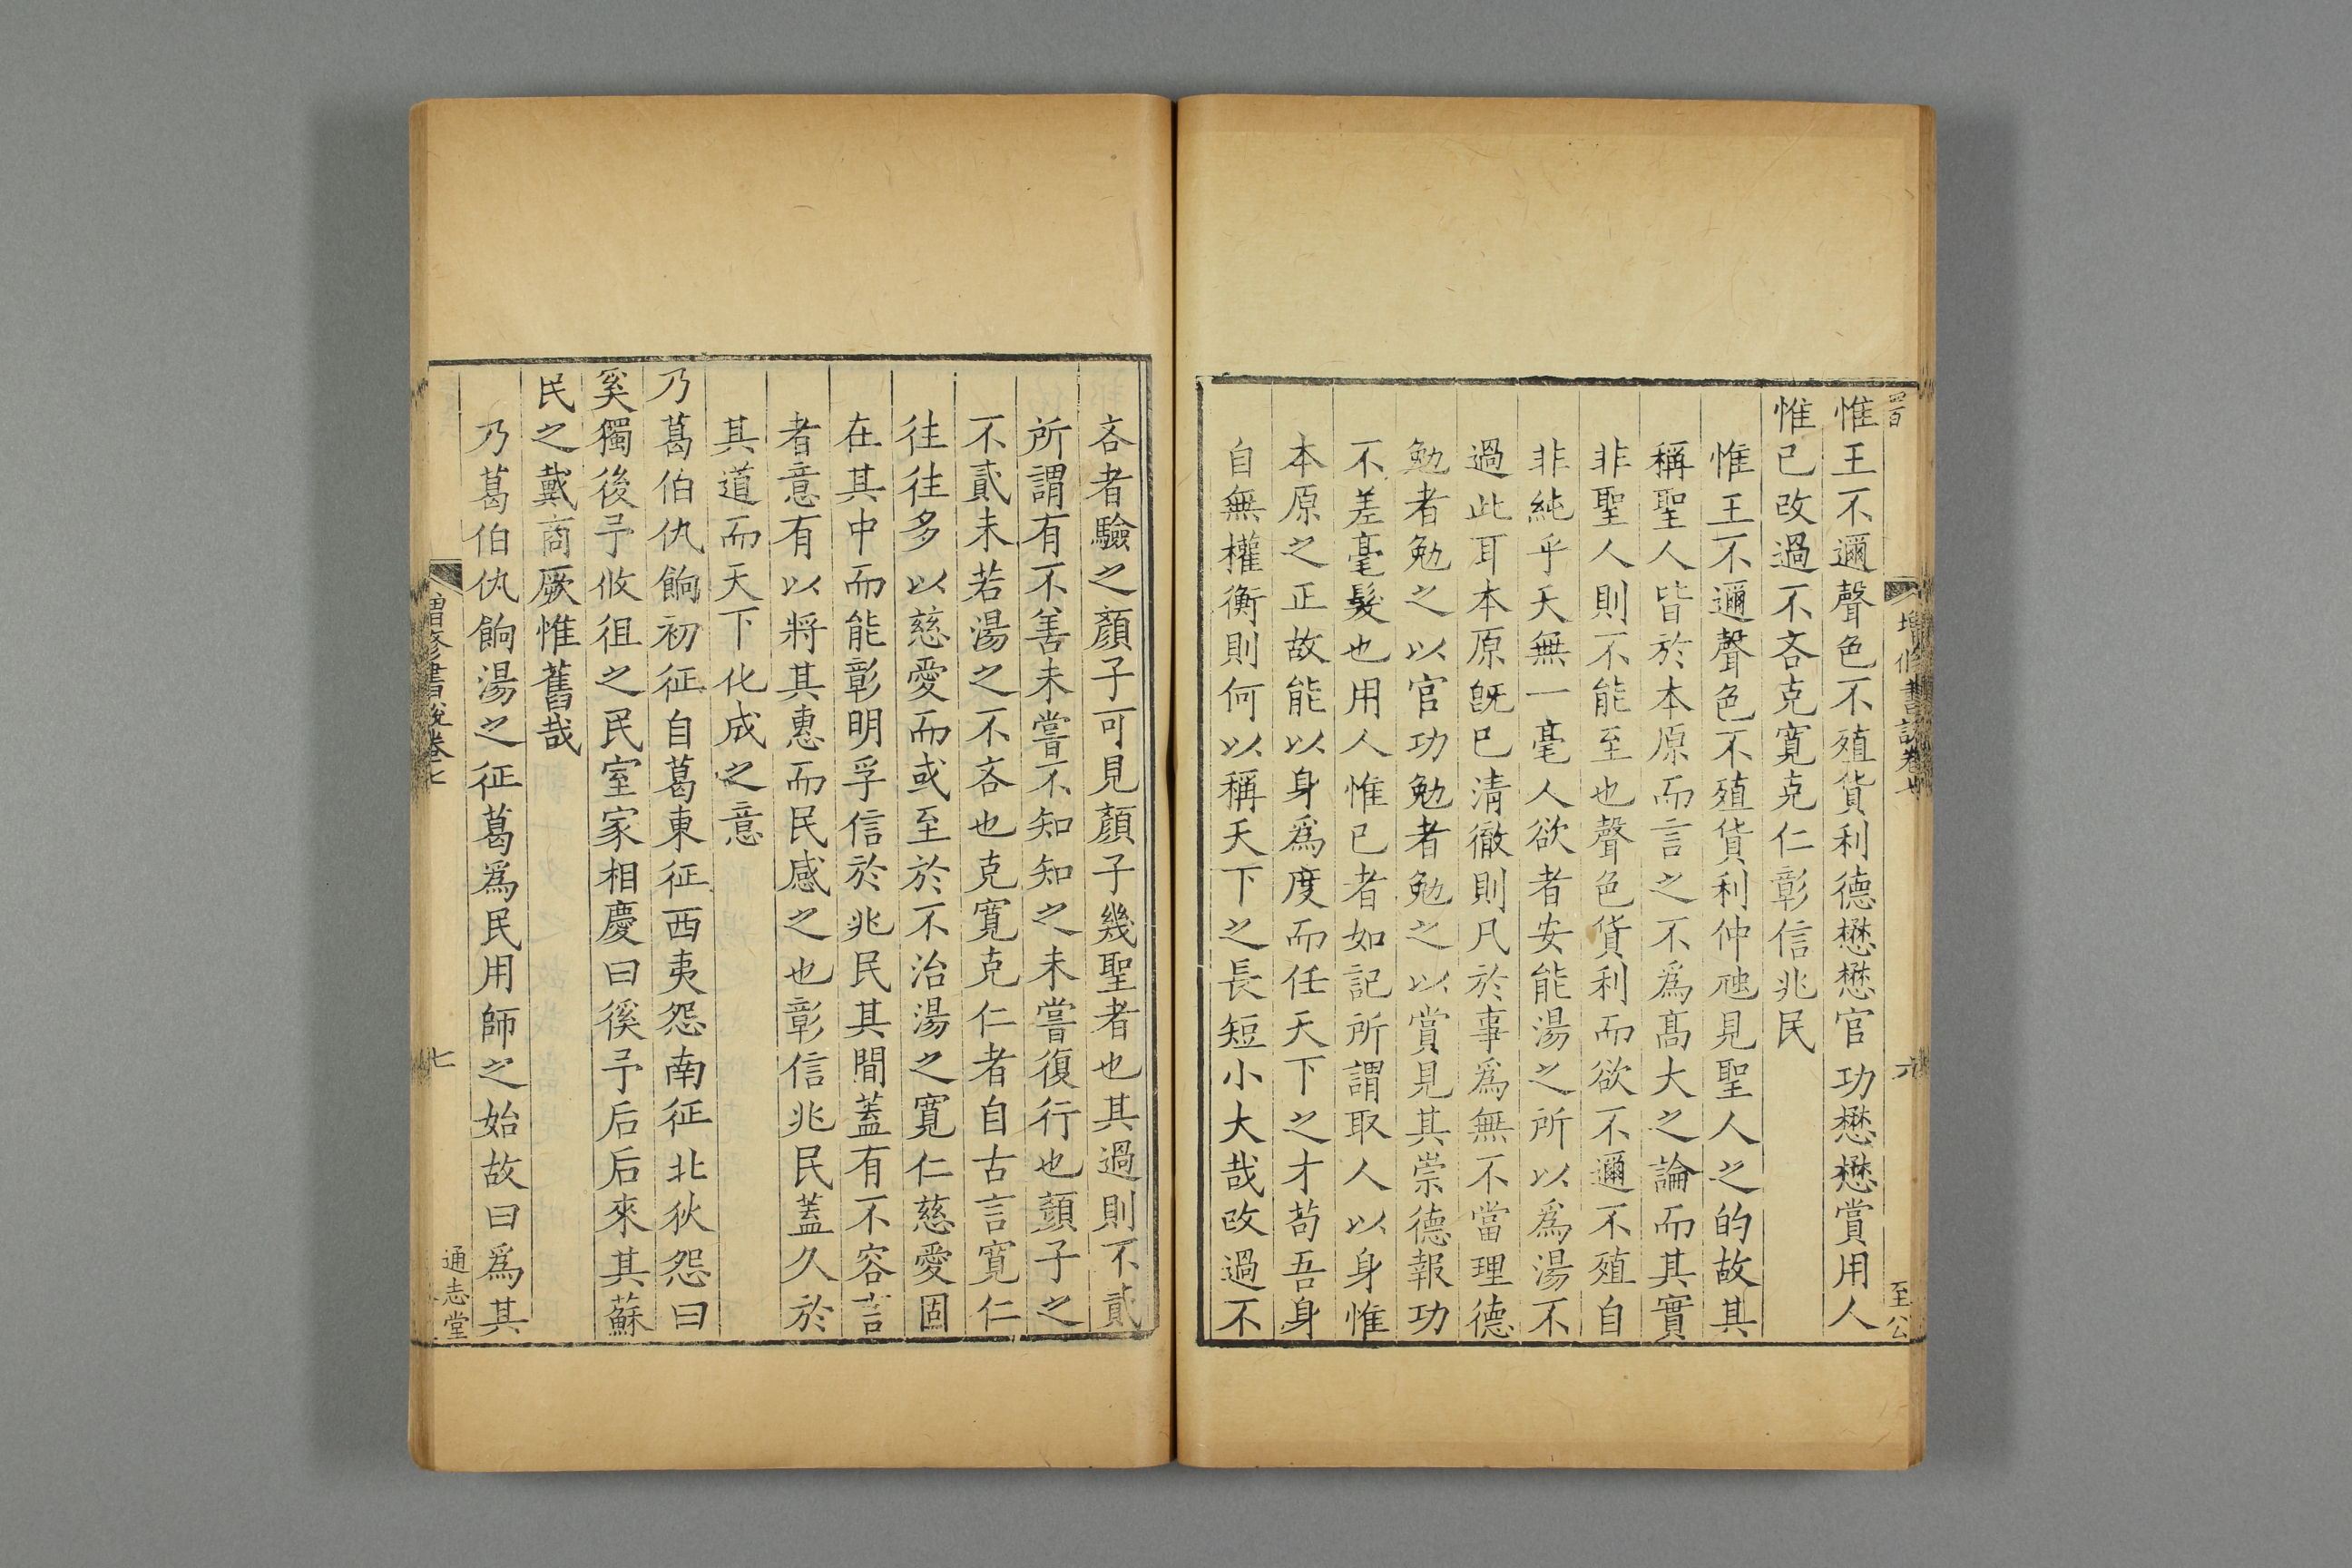 四百
增修書說卷七
六
至公
惟王不邇聲色不殖貨利德懋懋官功懋懋賞用人
惟已改過不吝克寛克仁彰信兆民
惟王不邇聲色不殖貨利仲虺見聖人之的故其
稱聖人皆於本原而言之不爲髙大之論而其實
非聖人則不能至也聲色貨利而欲不邇不殖自
非純乎天無一毫人欲者安能湯之所以爲湯不
過此耳本原旣已清徹則凡於事爲無不當理德
勉者勉之以官功勉者勉之以賞見其崇德報功
不差毫髮也用人惟已者如記所謂取人以身惟
本原之正故能以身爲度而任天下之才苟吾身
自無權衡則何以稱天下之長短小大哉改過不
吝者驗之顏子可見顏子幾聖者也其過則不貳
所謂有不善未嘗不知知之未嘗復行也顏子之
不貳未若湯之不吝也克寛克仁者自古言寛仁
往往多以慈愛而或至於不治湯之寛仁慈愛固
在其中而能彰明孚信於兆民其間蓋有不容言
者意有以將其惠而民感之也彰信兆民蓋久於
其道而天下化成之意
乃葛伯仇餉初征自葛東征西夷怨南征北狄怨曰
奚獨後予攸徂之民室家相慶曰徯予后后來其蘇
民之戴商厥惟舊哉
乃葛伯仇餉湯之征葛爲民用師之始故曰爲其
增修書說卷七
七
通志堂